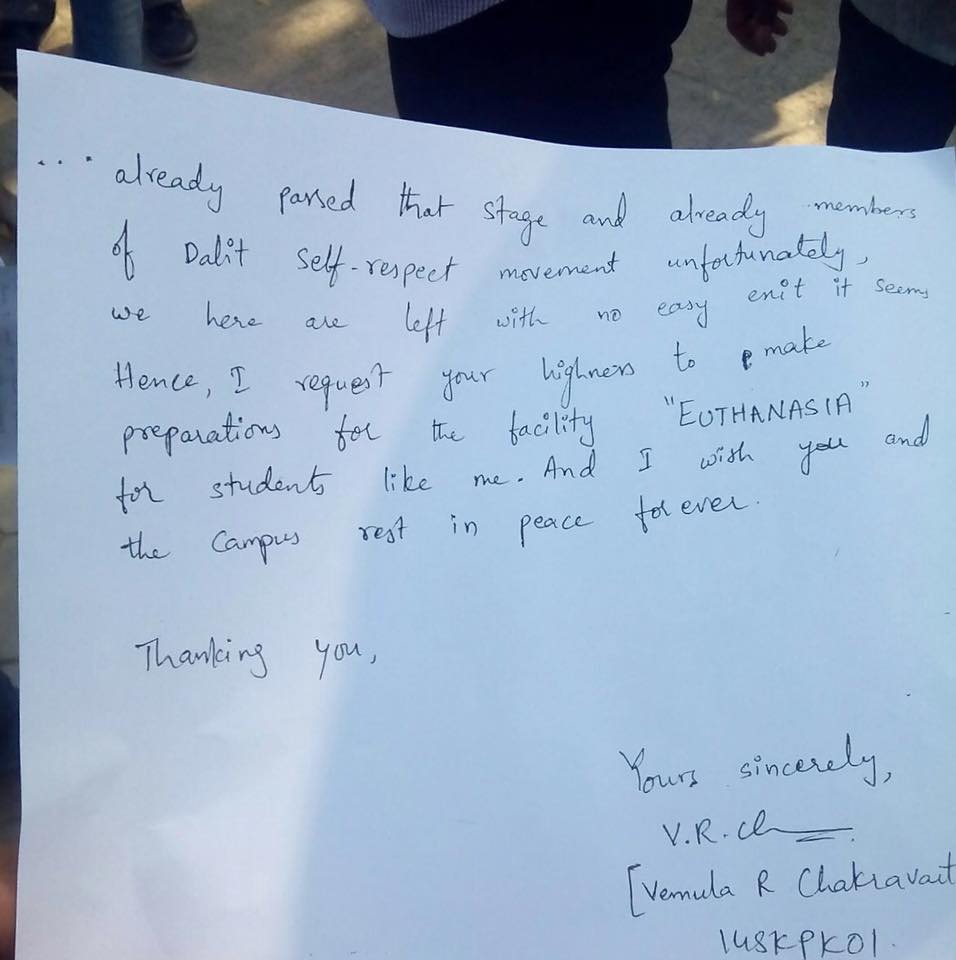 ... already passed that stage and already members
of Dalit Self-respect movement unfortunately,
we here are left with no easy exit it seems
Hence, I request your highness to make
preparations for the facility "EUTHANASIA"
for students like me. And I wish you and
the campus rest in peace forever.
Thanking you,
Yours sincerely,
V.R.Ch
[Vemula R Chakravart
14SKPK01.